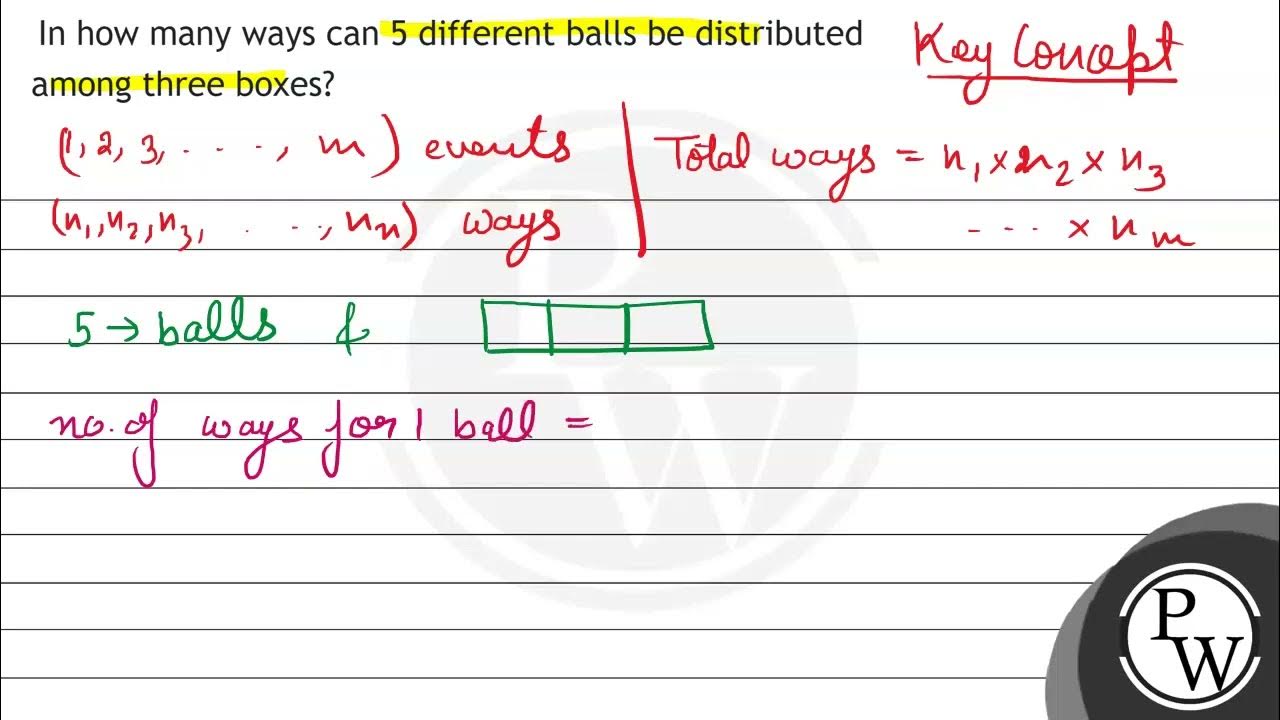 In how many ways can 5 different balls be distributed
among three boxes?
Key Concept
(1, 2, 3, . . . ., m) events
Total ways = n₁ × n₂ × n₃
(n₁, n₂, n₃, . . . ., nn) ways
- - - × n m
5 → balls &
no. of ways for 1 ball =
PW
PW